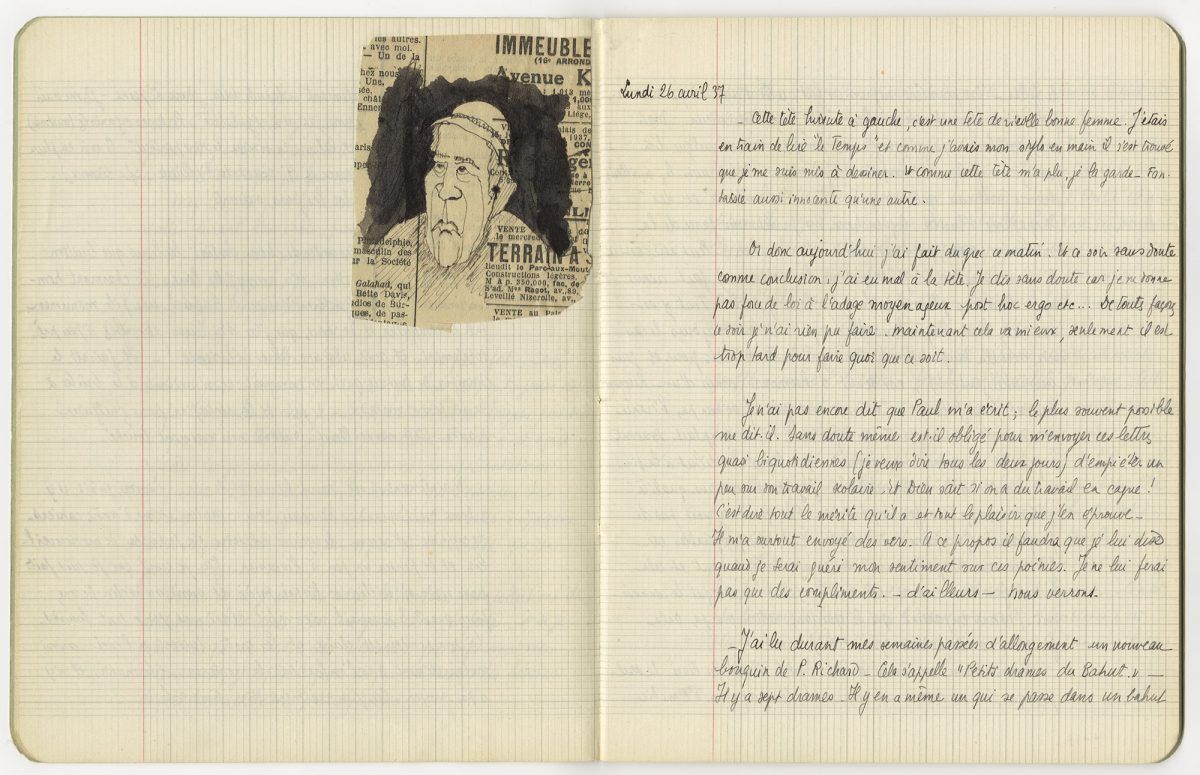 les autres.
avec moi.
— Un de la
chez nous
Une,
sée,
châ
Ennes
IMMEUBLE
(16e ARROND
Avenue K
1.013 mè
Liége,
1937,
CON
Philadelphie,
masculin des
ur la Société
Galahad, qui
Bette Davis,
dios de Bur-
ques, de pas-
VENTE
le mercred
TERRAIN A
lieudit le Parc-aux-Mout
Constructions légères.
M à p. 330,000, fac. de
S'ad. Mes Ragot, av., 89,
Leveillé Nizerolle, av.,
VENTE au Pal
Lundi 26 avril 37
— Cette tête hirsute à gauche, c'est une tête de vieille bonne femme. J'étais
en train de lire le Temps et comme j'avais mon stylo en main il s'est trouvé
que je me suis mis à dessiner. Et comme cette tête m'a plu, je la garde — Fan-
taisie aussi innocente qu'une autre.
Or donc aujourd'hui j'ai fait du grec ce matin. Et ce soir sans doute
comme conclusion j'ai eu mal à la tête. Je dis sans doute car je ne donne
pas force de loi à l'adage moyen ageux "post hoc ergo etc." De toute façon
ce soir je n'ai rien pu faire. Maintenant cela va mieux, seulement il est
trop tard pour faire quoi que ce soit.
Je n'ai pas encore dit que Paul m'a écrit ; le plus souvent possible
me dit-il. Sans doute même est-il obligé pour m'envoyer ces lettres
quasi biquotidiennes (je veux dire tous les deux jours) d'empiéter un
peu sur son travail scolaire. Et Dieu sait si on a du travail en cagne !
C'est dire tout le mérite qu'il a et tout le plaisir que j'en éprouve —
Il m'a surtout envoyé des vers. A ce propos il faudra que je lui dise
quand je serai guéri mon sentiment sur ces poèmes. Je ne lui ferai
pas que des compliments. — d'ailleurs — nous verrons.
J'ai lu durant mes semaines passées d'allongement un nouveau
bouquin de P. Richard — Cela s'appelle "Petits drames du Bahut." —
Il y a sept drames. Il y en a même un qui se passe dans un bahut